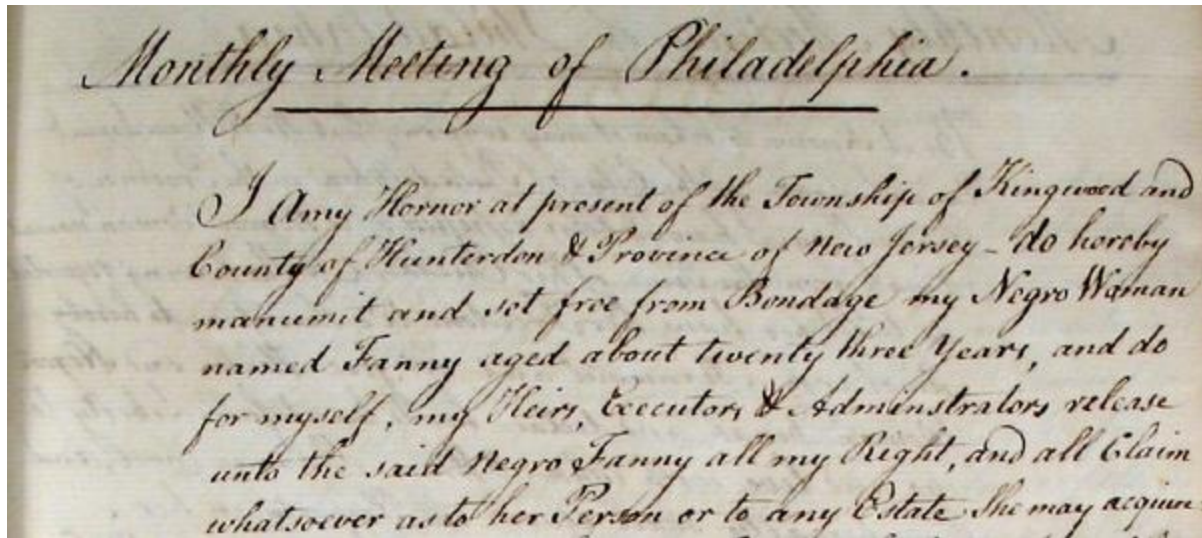 Monthly Meeting of Philadelphia.
I Amy Hornor at present of the Township of Kingwood and
County of Hunterdon & Province of New Jersey - do hereby
manumit and set free from Bondage my Negro Woman
named Fanny aged about twenty three Years, and do
for myself, my Heirs, Executors, & Adminstrators release
unto the said Negro Fanny all my Right, and all Claim
whatsoever as to her Person or to any Estate She may acquire